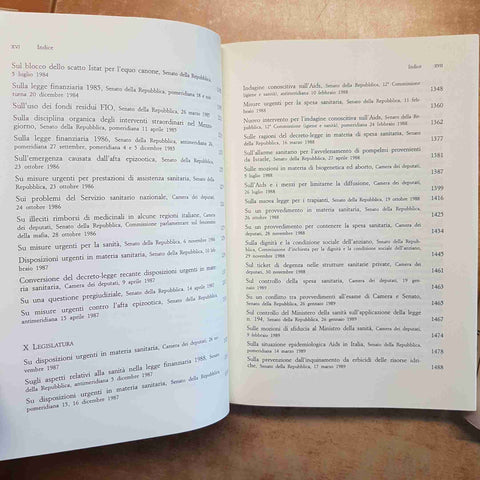 XVI Indice
Sul blocco dello scatto Istat per l'equo canone, Senato della Repubblica,
5 luglio 1984
Sulla legge finanziaria 1985, Senato della Repubblica, pomeridiana 18 e
turna 20 dicembre 1984
Sull'uso dei fondi residui FIO, Senato della Repubblica, 26 marzo 1985
Sulla disciplina organica degli interventi straordinari nel Mezzo-
giorno, Senato della Repubblica, pomeridiana 11 aprile 1985
Sulla legge finanziaria 1986, Senato della Repubblica, antimeridiana 26 e
pomeridiana 27 settembre, pomeridiana 4 e 5 dicembre 1985
Sull'emergenza causata dall'afta epizootica, Senato della Repubblica,
23 ottobre 1986
Su misure urgenti per prestazioni di assistenza sanitaria, Senato della
Repubblica, 23 ottobre 1986
Sui problemi del Servizio sanitario nazionale, Camera dei deputati,
24 ottobre 1986
Su illeciti rimborsi di medicinali in alcune regioni italiane, Camera
dei deputati, Commissione parlamentare sul fenomeno
della mafia, 28 ottobre 1986
Su misure urgenti per la sanità, Senato della Repubblica, 6 novembre 1986
Disposizioni urgenti in materia sanitaria, Senato della Repubblica, 10 feb-
braio 1987
Conversione del decreto-legge recante disposizioni urgenti in mate-
ria sanitaria, Camera dei deputati, 9 aprile 1987
Su una questione pregiudiziale, Senato della Repubblica, 14 aprile 1987
Su misure urgenti contro l'afta epizootica, Senato della Repubblica,
antimeridiana 15 aprile 1987
X LEGISLATURA
Su disposizioni urgenti in materia sanitaria, Camera dei deputati, no-
vembre 1987
Sugli aspetti relativi alla sanità nella legge finanziaria 1988, Senato
della Repubblica, antimeridiana 3 dicembre 1987
Su disposizioni urgenti in materia sanitaria, Senato della Repubblica,
pomeridiana 15, 16 dicembre 1987
Indice XVII
Indagine conoscitiva sull'Aids, Senato della Repubblica, 12ª Commissione
(igiene e sanità), antimeridiana 10 febbraio 1988 1348
Misure urgenti per la spesa sanitaria, Senato della Repubblica, 11 feb-
braio 1988 1360
Nuovo intervento per l'indagine conoscitiva sull'Aids, Senato della
Repubblica, 12ª Commissione (igiene e sanità), pomeridiana 24 febbraio 1988 1362
Sulle ragioni del decreto-legge in materia di spesa sanitaria, Senato della
Repubblica, 16 marzo 1988 1377
Sull'allarme sanitario per l'avvelenamento di pompelmi provenienti
da Israele, Senato della Repubblica, 27 aprile 1988 1380
Sulle mozioni in materia di biogenetica ed aborto, Camera dei deputati,
5 luglio 1988
Sull'Aids e i mezzi per limitarne la diffusione, Camera dei deputati,
26 luglio 1988 1399
Sulla nuova legge per i trapianti, Senato della Repubblica, 19 ottobre 1988 1416
Su un provvedimento in materia sanitaria, Senato della Repubblica,
26 ottobre 1988 1425
Su un provvedimento per contenere la spesa sanitaria, Camera dei
deputati, 26 novembre 1988 1434
Sulla dignità e la condizione sociale dell'anziano, Senato della Repub-
blica, Commissione d'inchiesta per la dignità e la condizione sociale dell'anziano,
29 novembre 1988 1443
Sul ticket di degenza nelle strutture sanitarie private, Camera dei
deputati, 30 novembre 1988 1461
Sul controllo della spesa sanitaria, Camera dei deputati, 19 gen-
naio 1989 1461
Su un conflitto tra provvedimenti all'esame di Camera e Senato,
Senato della Repubblica, 26 gennaio 1989 1463
Sul controllo del Ministero della sanità sull'applicazione della legge
n. 194, Senato della Repubblica, 26 gennaio 1989 1465
Sulle mozioni di sfiducia al Ministro della sanità, Camera dei deputati,
9 febbraio 1989 1474
Sulla situazione epidemiologica Aids in Italia, Senato della Repubblica,
pomeridiana 14 marzo 1989 1478
Sulla prevenzione dall'inquinamento da erbicidi delle risorse idri-
che, Senato della Repubblica, 17 marzo 1989 1488